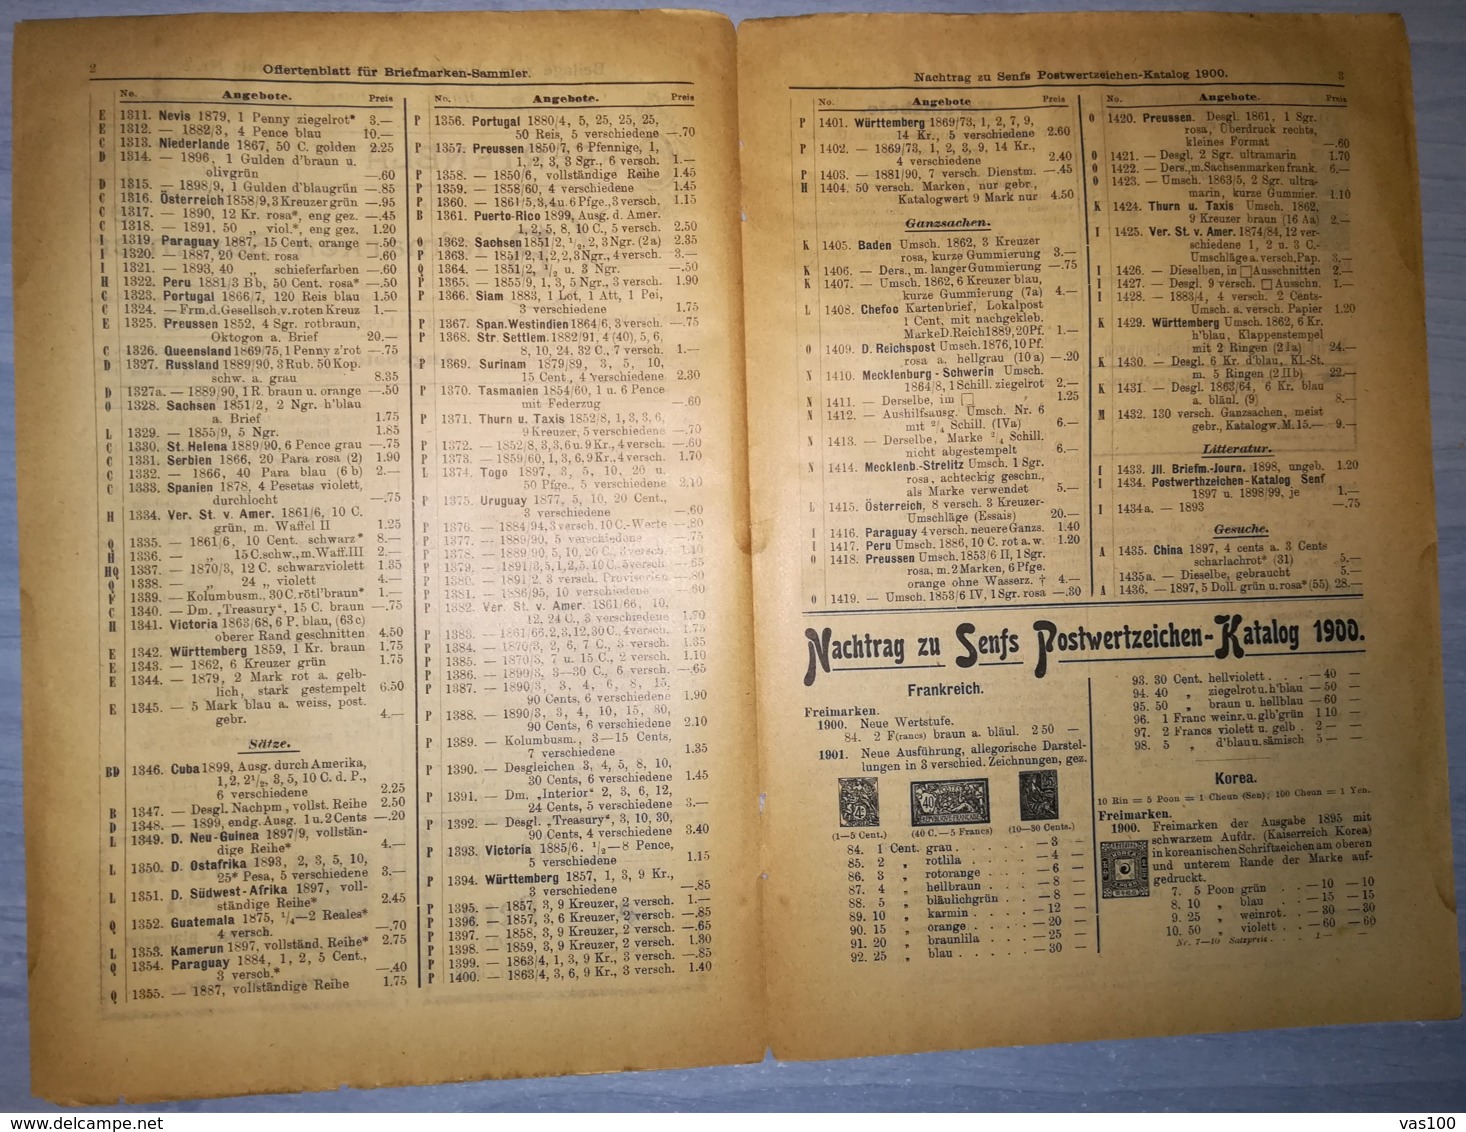 2
Offertenblatt für Briefmarken-Sammler.
No. Angebote. Preis
E 1311. Nevis 1879, 1 Penny ziegelrot* 3.—
E 1312. — 1882/3, 4 Pence blau 10.—
C 1313. Niederlande 1867, 50 C. golden 2.25
D 1314. — 1896, 1 Gulden d'braun u.
olivgrün —.60
D 1315. — 1898/9, 1 Gulden d'blaugrün —.85
C 1316. Österreich 1858/9, 3 Kreuzer grün —.95
C 1317. — 1890, 12 Kr. rosa*, eng gez. —.45
C 1318. — 1891, 50 „ viol.*, eng gez. 1.20
I 1319. Paraguay 1887, 15 Cent. orange —.50
I 1320. — 1887, 20 Cent. rosa —.60
I 1321. — 1893, 40 „ schieferfarben —.60
H 1322. Peru 1881/3 Bb, 50 Cent. rosa* —.50
C 1323. Portugal 1866/7, 120 Reis blau 1.50
C 1324. — Frm. d. Gesellsch. v. roten Kreuz 1.—
E 1325. Preussen 1852, 4 Sgr. rotbraun,
Oktogon a. Brief 20.—
C 1326. Queensland 1869/75, 1 Penny z'rot —.75
D 1327. Russland 1889/90, 3 Rub. 50 Kop.
schw. a. grau 8.35
D 1327a. — 1889/90, 1 R. braun u. orange —.50
O 1328. Sachsen 1851/2, 2 Ngr. h'blau
a. Brief 1.75
L 1329. — 1855/9, 5 Ngr. 1.85
C 1330. St. Helena 1889/90, 6 Pence grau —.75
C 1331. Serbien 1866, 20 Para rosa (2) 1.90
C 1332. — 1866, 40 Para blau (6 b) 2.—
C 1333. Spanien 1878, 4 Pesetas violett,
durchlocht —.75
H 1334. Ver. St. v. Amer. 1861/6, 10 C.
grün, m. Waffel II 1.25
Q 1335. — 1861/6, 10 Cent. schwarz* 8.—
H 1336. — 15 C. schw., m. Waff. III 2.—
HQ 1337. — 1870/3, 12 C. schwarzviolett 1.35
Q 1338. — „ 24 „ violett 4.—
F 1339. — Kolumbusm., 30 C. rötl'braun* 1.—
C 1340. — Dm. „Treasury", 15 C. braun —.75
H 1341. Victoria 1863/68, 6 P. blau, (63 c)
oberer Rand geschnitten 4.50
E 1342. Württemberg 1859, 1 Kr. braun 1.75
E 1343. — 1862, 6 Kreuzer grün 1.75
E 1344. — 1879, 2 Mark rot a. gelb-
lich, stark gestempelt 6.50
E 1345. — 5 Mark blau a. weiss, post.
gebr. 4.—
Sätze.
BD 1346. Cuba 1899, Ausg. durch Amerika,
1, 2, 2½, 3, 5, 10 C. d. P.,
6 verschiedene 2.25
B 1347. — Desgl. Nachpm., vollst. Reihe 2.50
D 1348. — 1899, endg. Ausg. 1 u. 2 Cents —.20
L 1349. D. Neu-Guinea 1897/9, vollstän-
dige Reihe* 4.—
L 1350. D. Ostafrika 1893, 2, 3, 5, 10,
25* Pesa, 5 verschiedene 3.—
L 1351. D. Südwest-Afrika 1897, voll-
ständige Reihe* 2.45
Q 1352. Guatemala 1875, ¼—2 Reales*
4 versch. —.70
L 1353. Kamerun 1897, vollständ. Reihe* 2.75
Q 1354. Paraguay 1884, 1, 2, 5 Cent.,
3 versch.* —.40
Q 1355. — 1887, vollständige Reihe 1.75
No. Angebote. Preis
P 1356. Portugal 1880/4, 5, 25, 25, 25,
50 Reis, 5 verschiedene —.70
P 1357. Preussen 1850/7, 6 Pfennige, 1,
1, 2, 3, 3 Sgr., 6 versch. 1.—
P 1358. — 1850/6, vollständige Reihe 1.45
P 1359. — 1858/60, 4 verschiedene 1.45
P 1360. — 1861/5, 3, 4 u. 6 Pfge., 3 versch. 1.15
B 1361. Puerto-Rico 1899, Ausg. d. Amer.
1, 2, 5, 8, 10 C., 5 versch. 2.50
O 1362. Sachsen 1851/2, ½, 2, 3 Ngr. (2a) 2.35
P 1363. — 1851/2, 1, 2, 2, 3 Ngr., 4 versch. 3.—
Q 1364. — 1851/2, ½ u. 3 Ngr. —.50
P 1365. — 1855/9, 1, 3, 5 Ngr., 3 versch. 1.90
P 1366. Siam 1883, 1 Lot, 1 Att, 1 Pei,
3 verschiedene 1.75
P 1367. Span. Westindien 1864/6, 3 versch. —.75
P 1368. Str. Settlem. 1882/91, 4 (40), 5, 6,
8, 10, 24, 32 C., 7 versch. 1.—
P 1369. Surinam 1879/89, 3, 5, 10,
15 Cent., 4 verschiedene 2.30
P 1370. Tasmanien 1854/60, 1 u. 6 Pence
mit Federzug —.60
P 1371. Thurn u. Taxis 1852/8, 1, 3, 3, 6,
9 Kreuzer, 5 verschiedene —.70
P 1372. — 1852/8, 3, 3, 6 u. 9 Kr., 4 versch. —.60
P 1373. — 1859/60, 1, 3, 6, 9 Kr., 4 versch. 1.70
L 1374. Togo 1897, 3, 5, 10, 20 u.
50 Pfge., 5 verschiedene 2.10
P 1375. Uruguay 1877, 5, 10, 20 Cent.,
3 verschiedene —.60
P 1376. — 1884/94, 3 versch. 10 C.-Werte —.80
P 1377. — 1889/90, 5 verschiedene —.75
P 1378. — 1889/90, 5, 10, 20 C., 3 versch. 1.40
P 1379. — 1891/3, 5, 1, 2, 5, 10 C. 5 versch. —.65
P 1380. — 1891/2, 3 versch. Provisorien —.80
P 1381. — 1895, 10 verschiedene —.60
P 1382. Ver. St. v. Amer. 1861/66, 10,
12, 24 C., 3 verschiedene 1.70
P 1383. — 1861/66, 2, 3, 12, 30 C., 4 versch. 1.75
P 1384. — 1870/3, 2, 6, 7 C., 3 versch. 1.35
P 1385. — 1870/3, 7 u. 15 C., 2 versch. 1.10
P 1386. — 1890/3, 3—30 C., 6 versch. —.65
P 1387. — 1890/3, 3, 4, 6, 8, 15,
90 Cents, 6 verschiedene 1.90
P 1388. — 1890/3, 3, 4, 10, 15, 30,
90 Cents, 6 verschiedene 2.10
P 1389. — Kolumbusm., 3—15 Cents,
7 verschiedene 1.35
P 1390. — Desgleichen 3, 4, 5, 8, 10,
30 Cents, 6 verschiedene 1.45
P 1391. — Dm. „Interior" 2, 3, 6, 12,
24 Cents, 5 verschiedene 3.—
P 1392. — Desgl. „Treasury", 3, 10, 30,
90 Cents, 4 verschiedene 3.40
P 1393. Victoria 1885/6. ½—8 Pence,
5 verschiedene 1.15
P 1394. Württemberg 1857, 1, 3, 9 Kr.,
3 verschiedene —.85
P 1395. — 1857, 3, 9 Kreuzer, 2 versch. 1.—
P 1396. — 1857, 3, 6 Kreuzer, 2 versch. —.85
P 1397. — 1858, 3, 9 Kreuzer, 2 versch. —.65
P 1398. — 1859, 3, 9 Kreuzer, 2 versch. 1.30
P 1399. — 1863/4, 1, 3, 9 Kr., 3 versch. —.85
P 1400. — 1863/4, 3, 6, 9 Kr., 3 versch. 1.40
Nachtrag zu Senfs Postwertzeichen-Katalog 1900.
3
No. Angebote Preis
P 1401. Württemberg 1869/73, 1, 2, 7, 9,
14 Kr., 5 verschiedene 2.60
P 1402. — 1869/73, 1, 2, 3, 9, 14 Kr.,
4 verschiedene 2.40
P 1403. — 1881/90, 7 versch. Dienstm. —.45
H 1404. 50 versch. Marken, nur gebr.,
Katalogwert 9 Mark nur 4.50
Ganzsachen.
K 1405. Baden Umsch. 1862, 3 Kreuzer
rosa, kurze Gummierung 3.—
K 1406. — Ders., m. langer Gummierung —.75
K 1407. — Umsch. 1862, 6 Kreuzer blau,
kurze Gummierung (7a) 4.—
L 1408. Chefoo Kartenbrief, Lokalpost
1 Cent, mit nachgekleb.
Marke D. Reich 1889, 20 Pf. 1.—
O 1409. D. Reichspost Umsch. 1876, 10 Pf.
rosa a. hellgrau (10 a) —.20
N 1410. Mecklenburg-Schwerin Umsch.
1864/8, 1 Schill. ziegelrot 2.—
N 1411. — Derselbe, im □ 1.25
N 1412. — Aushilfsausg. Umsch. Nr. 6
mit 2/4 Schill. (IVa) 6.—
N 1413. — Derselbe, Marke 2/4 Schill.
nicht abgestempelt 6.—
N 1414. Mecklenb.-Strelitz Umsch. 1 Sgr.
rosa, achteckig geschn.,
als Marke verwendet 5.—
L 1415. Österreich, 8 versch. 3 Kreuzer-
Umschläge (Essais) 20.—
I 1416. Paraguay 4 versch. neuere Ganzs. 1.40
I 1417. Peru Umsch. 1886, 10 C. rot a. w. 1.20
O 1418. Preussen Umsch. 1853/6 II, 1 Sgr.
rosa, m. 2 Marken, 6 Pfge.
orange ohne Wasserz. † 4.—
O 1419. — Umsch. 1853/6 IV, 1 Sgr. rosa —.30
No. Angebote. Preis
O 1420. Preussen. Desgl. 1861, 1 Sgr.
rosa, Überdruck rechts,
kleines Format —.60
O 1421. — Desgl. 2 Sgr. ultramarin 1.70
O 1422. — Ders., m. Sachsenmarken frank. 6.—
O 1423. — Umsch. 1863/5, 2 Sgr. ultra-
marin, kurze Gummier. 1.10
K 1424. Thurn u. Taxis Umsch. 1862,
9 Kreuzer braun (16 Aa) 2.—
I 1425. Ver. St. v. Amer. 1874/84, 12 ver-
schiedene 1, 2 u. 3 C.-
Umschläge a. versch. Pap. 3.—
I 1426. — Dieselben, in □ Ausschnitten 2.—
I 1427. — Desgl. 9 versch. □ Ausschn. 1.—
I 1428. — 1883/4, 4 versch. 2 Cents-
Umsch. a. versch. Papier 1.20
K 1429. Württemberg Umsch. 1862, 6 Kr.
h'blau, Klappenstempel
mit 2 Ringen (2 I a) 24.—
K 1430. — Desgl. 6 Kr. d'blau, Kl.-St.
m. 5 Ringen (2 II b) 22.—
K 1431. — Desgl. 1863/64, 6 Kr. blau
a. bläul. (9) 8.—
M 1432. 130 versch. Ganzsachen, meist
gebr., Katalogw. M. 15.— 9.—
Litteratur.
I 1433. Jll. Briefm.-Journ. 1898, ungeb. 1.20
I 1434. Postwerthzeichen-Katalog Senf
1897 u. 1898/99, je 1.—
I 1434 a. — 1893 —.75
Gesuche.
A 1435. China 1897, 4 cents a. 3 Cents
scharlachrot* (31) 5.—
1435 a. — Dieselbe, gebraucht 5.—
A 1436. — 1897, 5 Doll. grün u. rosa* (55) 28.—
Nachtrag zu Senfs Postwertzeichen-Katalog 1900.
Frankreich.
Freimarken.
1900. Neue Wertstufe.
84. 2 F(rancs) braun a. bläul. 2 50 —
1901. Neue Ausführung, allegorische Darstel-
lungen in 3 verschied. Zeichnungen, gez.
(1—5 Cent.) (40 C.—5 Francs) (10—30 Cents.)
84. 1 Cent. grau . . . . . —3 —
85. 2 „ rotlila . . . . —4 —
86. 3 „ rotorange . . . —6 —
87. 4 „ hellbraun . . . —8 —
88. 5 „ bläulichgrün . . —8 —
89. 10 „ karmin . . . . —12 —
90. 15 „ orange . . . . —20 —
91. 20 „ braunlila . . . —25 —
92. 25 „ blau . . . . . —30 —
93. 30 Cent. hellviolett . . . —40 —
94. 40 „ ziegelrot u. h'blau —50 —
95. 50 „ braun u. hellblau —60 —
96. 1 Franc weinr. u. glb'grün 1 10 —
97. 2 Francs violett u. gelb . 2 — —
98. 5 „ d'blau u. sämisch 5 — —
Korea.
10 Rin = 5 Poon = 1 Cheun (Sen); 100 Cheun = 1 Yen.
Freimarken.
1900. Freimarken der Ausgabe 1895 mit
schwarzem Aufdr. (Kaiserreich Korea)
in koreanischen Schriftzeichen am oberen
und unterem Rande der Marke auf-
gedruckt.
7. 5 Poon grün . . —10 —10
8. 10 „ blau . . —15 —15
9. 25 „ weinrot . —30 —30
10. 50 „ violett . . —60 —60
Nr. 7—10 Satzpreis . . . 1.— —
www.delcampe.net
vas100